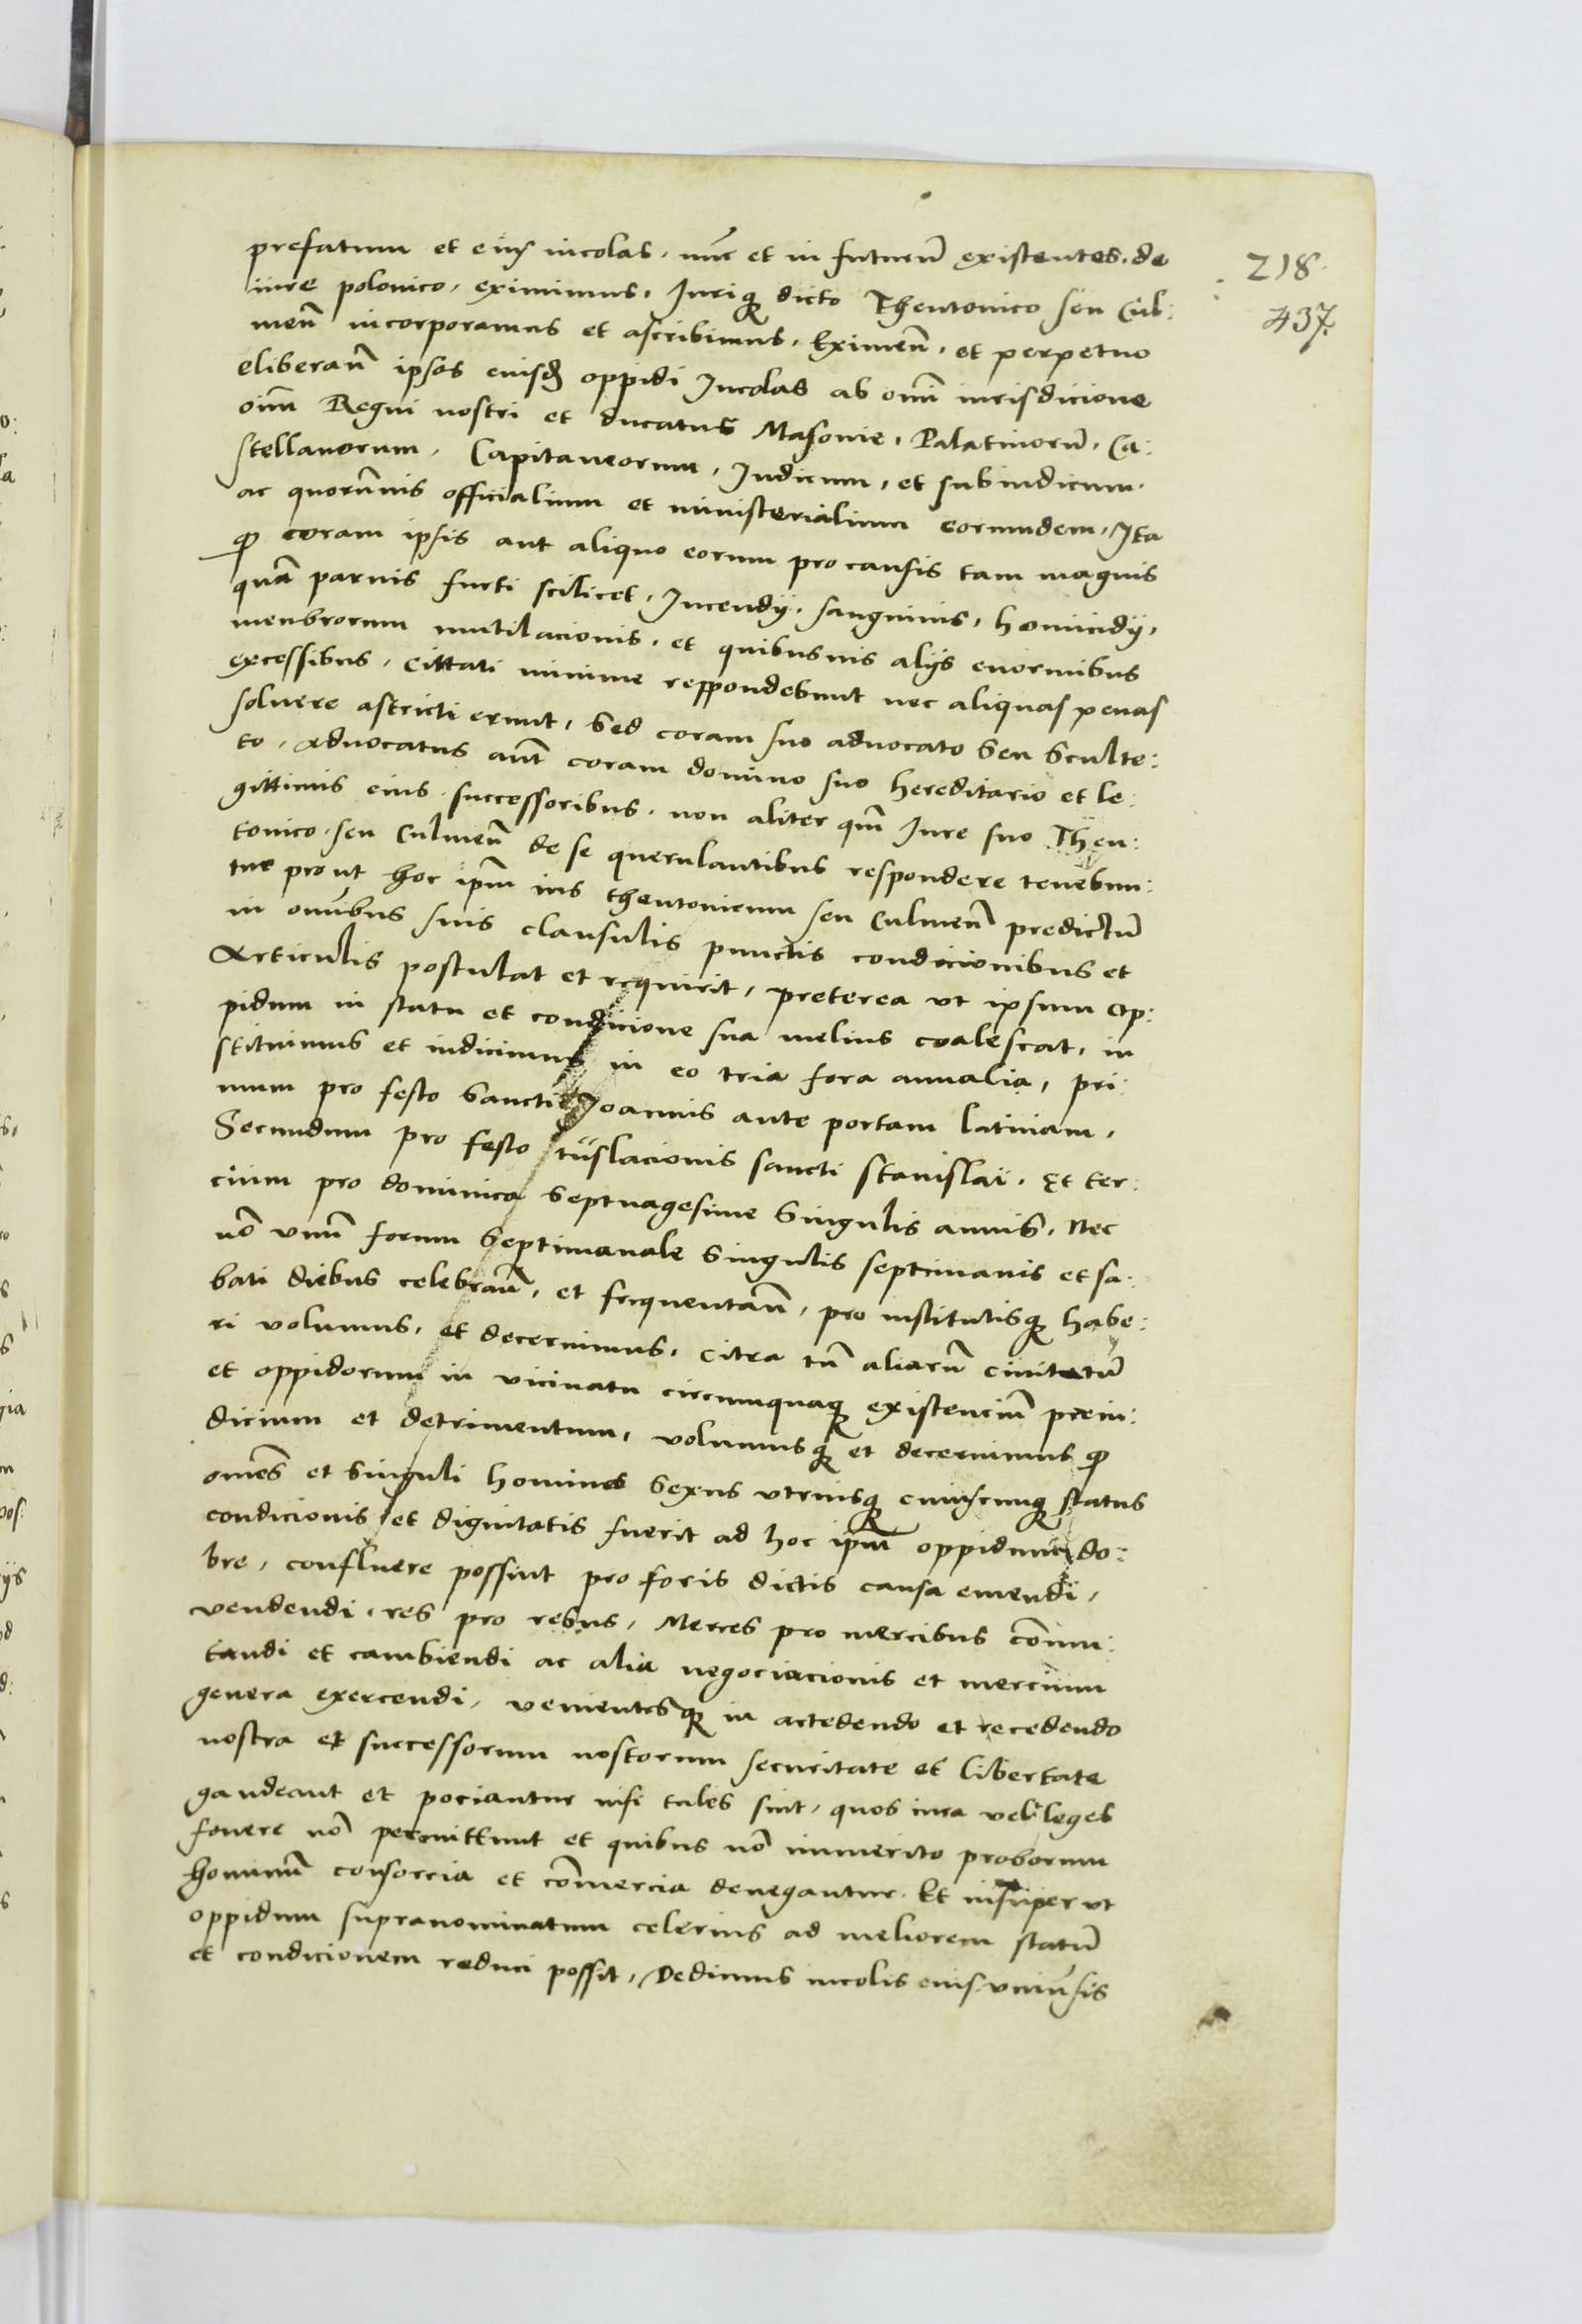 218.
437.
prefatum et eius incolas, nūc et in futurū existentes, de
iure polonico, eximimus, Juriqꝫ dicto Theutonico seu Cul:
meñ incorporamus et ascribimus, Eximeñ, et perpetuo
eliberañ ipsos eiusdꝫ oppidi Incolas ab omī iurisdicione
oīm Regni nostri et ducatus Masouie, Palatinorū, Ca:
stellanorum, Capitaneorum, Judicum, et subiudicum,
ac quorumuis officialium et ministerialium eorumdem, Ita
ꝙ coram ipsis aut aliquo eorum pro causis tam magnis
quā paruis furti scilicet, Incendij, sanguinis, homicidij,
menbrorum mutilacionis, et quibusuis alijs enormibus
excessibus, Cittati minime respondebunt nec aliquas penas
soluere astricti erunt, Sed coram suo aduocato Seu Sculte:
to, Aduocatus aūt coram domino suo hereditario et le:
gittimis eius successoribus, non aliter qm̄ Jure suo Theu:
tonico seu Culmeñ de se querulantibus respondere tenebun:
tur prout hoc ipm̄ ius theutonicum seu Culmeñ predictū
in omībus suis clausulis punctis condicionibus et
Articulis postulat et requirit, preterea vt ipsum op:
pidum in statu et condicione sua melius coalescat, in
stituimus et indicimus in eo tria fora annualia, pri:
mum pro festo Sancti Joannis ante portam latinam,
Secundum pro festo tn̄slacionis sancti Stanislai. Et ter:
cium pro dominica Septuagesime Singulis annis, Nec
nō vnū forum Septimanale Singulis septimanis et sa:
bati diebus celebrañ, et frequentañ, pro institutisqꝫ habe:
ri volumus, et decernimus, citra tn̄ aliarū ciuitatū
et oppidorum in vicinatu circumquaqꝫ existenciū preiu:
dicium et detrimentum, volumusqꝫ et decernimus ꝙ
om̄es et Singuli homines Sexus vtriusqꝫ cuiuscumqꝫ status
condicionis et dignitatis fuerit ad hoc ipm̄ oppidum do:
bre, confluere possint pro foris dictis causa emendi,
vendendi, res pro rebus, Merces pro mercibus com̄u:
tandi et cambiendi ac alia negociacionis et mercium
genera exercendi, venientesqꝫ in accedendo et recedendo
nostra et successorum nostorum securitate et libertate
gaudeant et pociantur nisi tales sint, quos iura vel leges
fouere nō permittunt et quibus nō immerito proborum
hominū consorcia et com̄ercia denegantur. Et insuper vt
oppidum supranominatum celerius ad meliorem statū
et condicionem reduci possit, Dedimus incolis eius vniūsis